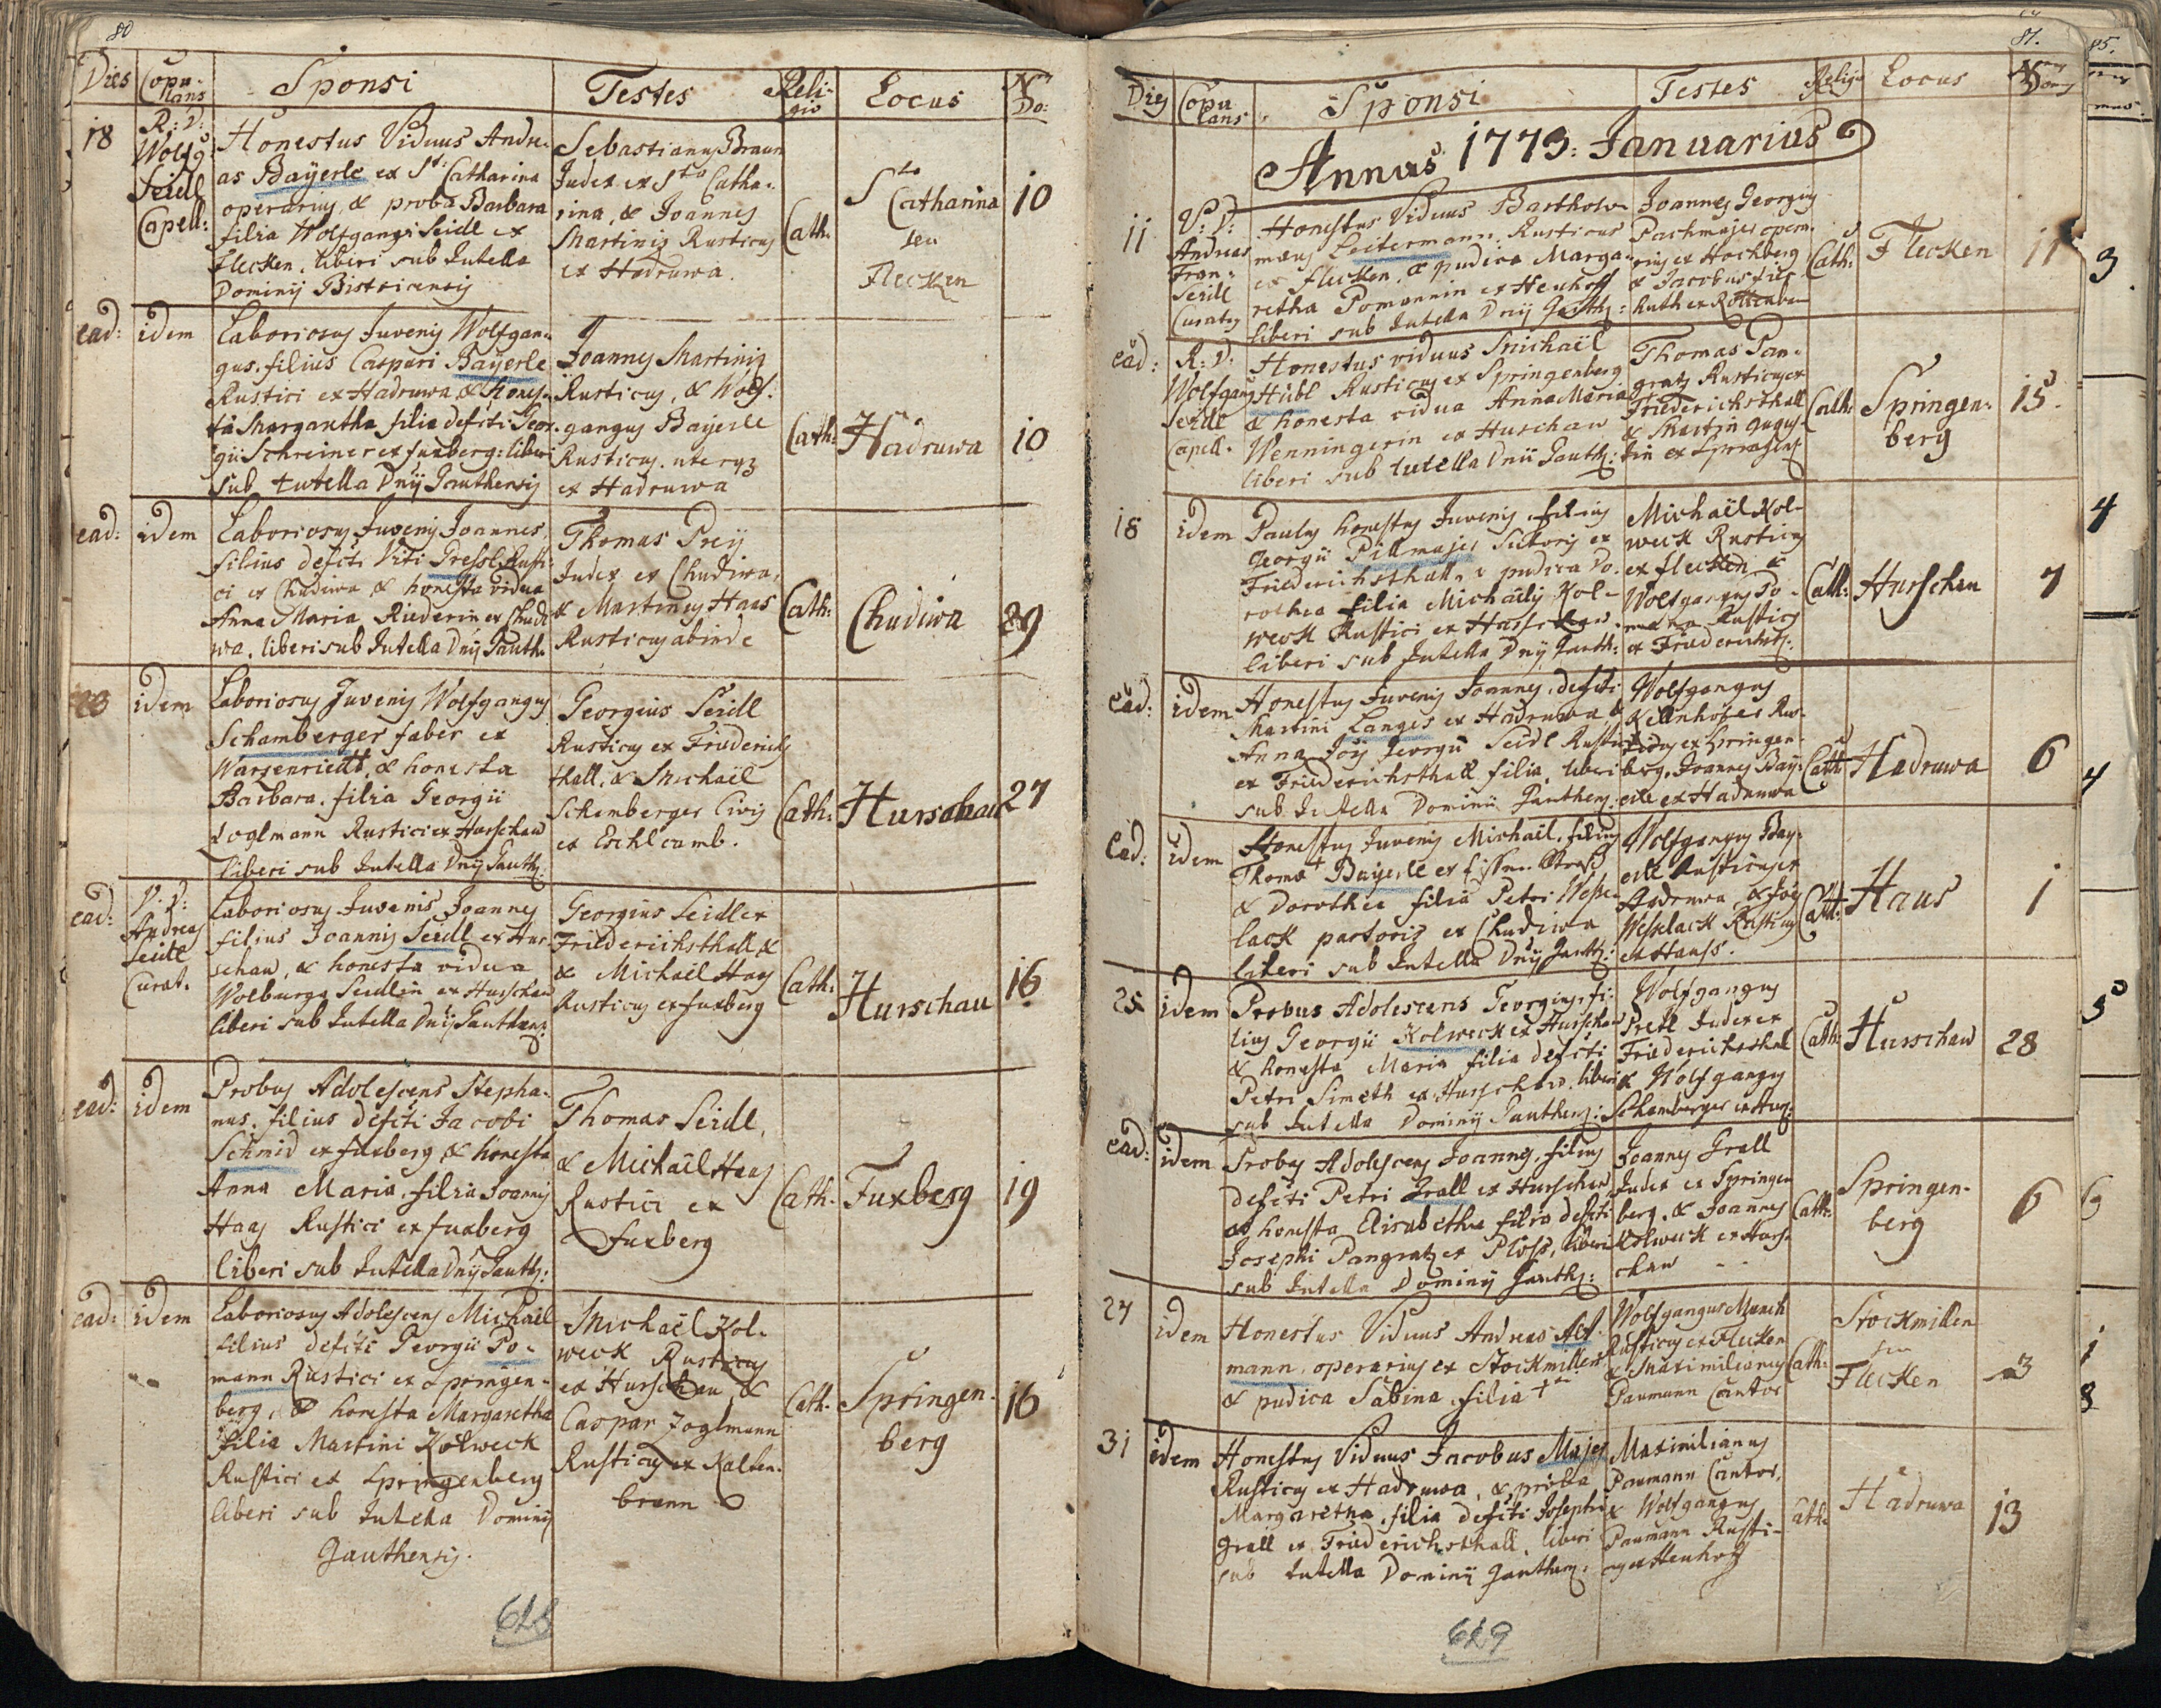 80
Dies Copu- Sponsi Testes Reli- Locus Nrus
lans gio Do:
18
R: D:
Wolfg
Seidl
Capell:
Honestus Viduus Andre-
as Baÿerle ex Sta: Catharina
operarius, & proba Barbara
filia Wolfgangi Seidl ex
Flecken, liberi sub Tutella
Dominij Bistricensis
Sebastianus Braun
Judex ex Sta Catha-
rina, & Joannes
Martinis Rusticus
ex Hadruwa.
Cath:
Sta
Catharina
seu
Flecken
10
ead: idem
Laboriosus Juvenis Wolfgan-
gus, filius Caspari Baÿerle
Rustici ex Hadruwa, & hones-
ta Margaretha filia defti Geor-
gii Schreiner ex fuxberg: liberi
sub tutella Dnij Gauthensis
Joannes Martinis
Rusticus, & Wolf-
gangus Baÿerle
Rusticus. uterqz
ex Hadruwa
Cath: Hadruwa 10
ead: idem
Laboriosus Juvenis Joannes,
filius defti Viti Gressl Rusti-
ci ex Chudiwa & honesta vidua
Anna Maria Riederin ex Chudi
wa, liberi sub Tutella Dnij Gauth:
Thomas Preÿ
Judex ex Chudiwa,
& Martinus Haas
Rusticus abinde
Cath: Chudiwa 29
idem
Laboriosus Juvenis Wolfgangus
Schamberger faber ex
Warzenriedt, & honesta
Barbara, filia Georgii
Zoglmann Rustici ex Hurschau
liberi sub Tutella Dnij Gauth:
Georgius Seidl
Rusticus ex Friederichs
thall, & Michaël
Schamberger Civis
ex Eschlcamb.
Cath: Hurschau 27
ead:
V. D:
Andreas
Seidl
Curat.
Laboriosus Juvenis Joannes
filius Joannis Seidl ex Hur-
schau, & honesta vidua
Walburga Seidlin ex Hurschau
liberi sub Tutella Dnij Gauthens:
Georgius Seidl ex
Friederichsthall, &
& Michaël Haas
Rusticus ex fuxberg
Cath: Hurschau 16
ead: idem
Probus Adolescens Stepha-
nus, filius defti Jacobi
Schmid ex fuxberg, & honesta
Anna Maria, filia Joannis
Haas Rustici ex fuxberg
liberi sub Tutella Dnij Gauth:
Thomas Seidl,
& Michaël Haas
Rustici ex
Fuxberg
Cath. Fuxberg 19
ead: idem
Laboriosus Adolescens Michaël
filius defti Georgii Po-
mann Rustici ex Springen-
berg, & honesta Margaretha
filia Martini Kolweck
Rustici ex Springenberg
liberi sub Tutella Dominij
Gauthensis.
Michaël Kol-
weck Rusticus
ex Hurschau &
Caspar Zoglmann
Rusticus ex Kalten-
brunn
Cath. Springen-
berg
16
628
81.
Dies Copu Sponsi Testes Religio Locus Nrus
lans Domus
Annus 1773: Januarius
11
V: D:
Andreas
Fran:
Seidl
Curatus
Honestus Viduus Bartholo-
maeus Leitermann Rusticus
ex Flecken, & pudica Marga-
retha Pomannin ex Heuhoff
liberi sub Tutella Dnij Gauth:
Joannes Georgius
Pachmajer opera-
rius ex Hochberg
& Jacobus
Cath: Flecken 11
ead:
R: D:
Wolfgang
Seidl
Capell.
Honestus viduus Michaël
Hübl Rusticus ex Springenberg
& honesta vidua Anna Maria
Wenningerin ex Huschaw
liberi sub tutella Dnij Gauth:
Thomas Pan-
gratz Rusticus ex
Friederichsthall
& Martin
Cath: Springen-
berg
15.
18 idem
Paulus honestus Juvenis, filius
Georgii Pillmajer Sutoris ex
Friederichsthall, & pudica Do-
rothea filia Michaëlis Kol-
weck Rustici ex Hurschau.
liberi sub Tutella Dnij Gauth:
Michaël Kol-
weck Rusticus
ex flecken &
Wolfgangus Po-
mann Rusticus
ex Friederichst:
Cath: Hurschau 7
ead: idem
Honestus Juvenis Joannes, defti
Martini Langes ex Hadruwa &
Anna Georgii Seidl Rustici
ex Friederichsthall filia, liberi
sub Tutella Dominii Gauthens:
Wolfgangus
Kellnhofer Rus-
ticus ex Springen-
berg, Joannes Baÿ-
erle ex Hadruwa
Cath: Hadruwa 6
Ead: idem
Honestus Juvenis Michaël, filius
Thomae Baÿerle ex
& Dorothea filia Petri Wesse-
lack pastoris ex Chudiwa
liberi sub Tutella Dnij Gauth:
Wolfgangus Baÿ-
erle Rusticus ex
Hadruwa, &
Wesselack Rusticus
ex Hauss.
Cath: Haus 1
25 idem
Probus Adolescens Georgius, fi-
lius Georgii Kolweck ex Hurschau
& honesta Maria filia defti
Petri Simeth ex Hurschau. liberi
sub Tutella Dominij Gauthens:
Wolfgangus
Preÿ Judex ex
Friederichsthal
& Wolfgangus
Schamberger ex Hur:
Cath: Hurschaw 28
ead: idem
Probus Adolescens Joannes, filius
defti Petri Grall ex Hurschau
& honesta Elisabetha filia defti
Josephi Pangratz ex Ploss, liberi
sub Tutella Dominij Gauth:
Joannes Grall
Judex ex Springen
berg, & Joannes
Kolweck ex Hurs-
chau
Cath: Springen-
berg
6
27 idem
Honestus Viduus Andreas Alt-
mann, operarius ex Stockmillen
& pudica Sabina, filia
Wolfgangus Munch
Rusticus ex Flecken
& Maximilianus
Paumann Cantor
Cath: Stockmillen
seu
Flecken
3
31 idem
Honestus Viduus Jacobus Majer
Rusticus ex Hadruwa, & proba
Margaretha, filia defti Josephi
Grall ex Friederichsthall, liberi
sub tutella Dominij Gauthens:
Maximilianus
Paumann Cantor,
& Wolfgangus
Paumann Rusti-
cus ex Heuhof
Cath: Hadruwa 13
629
85.
3
4
4
5
6
1
8